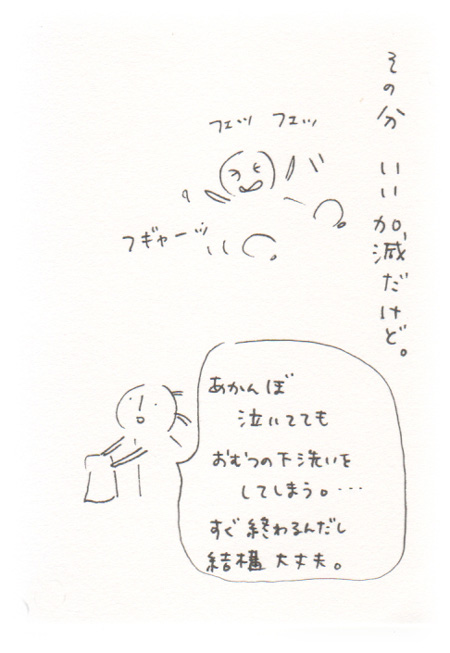 その分 いい加減だけど。
フェッ フェッ
フギャーッ
あかんぼ
泣いてても
おむつの下洗いを
してしまう。…
すぐ終わるんだし
結構大丈夫。